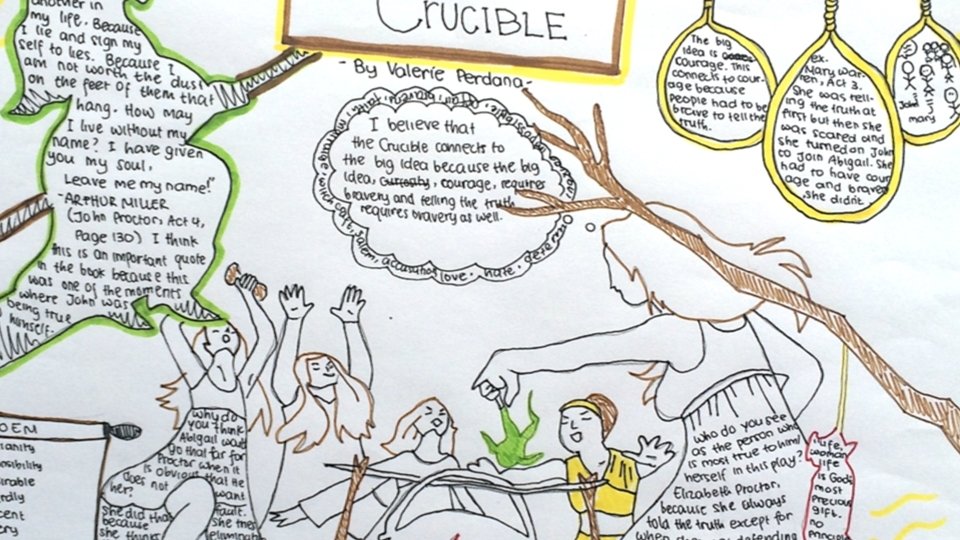 CRUCIBLE
- By Valerie Perdana -
another in
my life. Because
I lie and sign my
self to lies. Because I
am not worth the dust
on the feet of them that
hang. How may
I live without my
name? I have given
you my soul,
Leave me my name!"
-ARTHUR MILLER
(John Proctor, Act 4,
Page 130) I think
this is an important quote
in the book because this
was one of the moments
where John was
being true
himself.
I believe that
the Crucible connects to
the big Idea because the big
Idea, curiosity, courage, requires
bravery and telling the truth
requires bravery as well.
salem, accusation, love, hate,
The big
idea is
courage. This
connects to cour-
age because
people had to be
brave to tell the
truth.
ex-
Mary War-
ren, Act 3.
She was tell-
ing the truth at
first but then she
was scared and
she turned on John
to join Abigail. She
had to have cour
age and bravery
she didn't.
John
mary
OEM
why do
you think
Abigail would
go that far for
Proctor when it
is obvious that He
does not want
her? fault.
She did that She tries
because eliminat
she thinks
who do you see
as the person who
is most true to him/
herself in this play?
Elizabeth Proctor,
because she always
told the truth except for
when
defending
life,
woman,
life
is God's
most
precious
gift.
no
principle